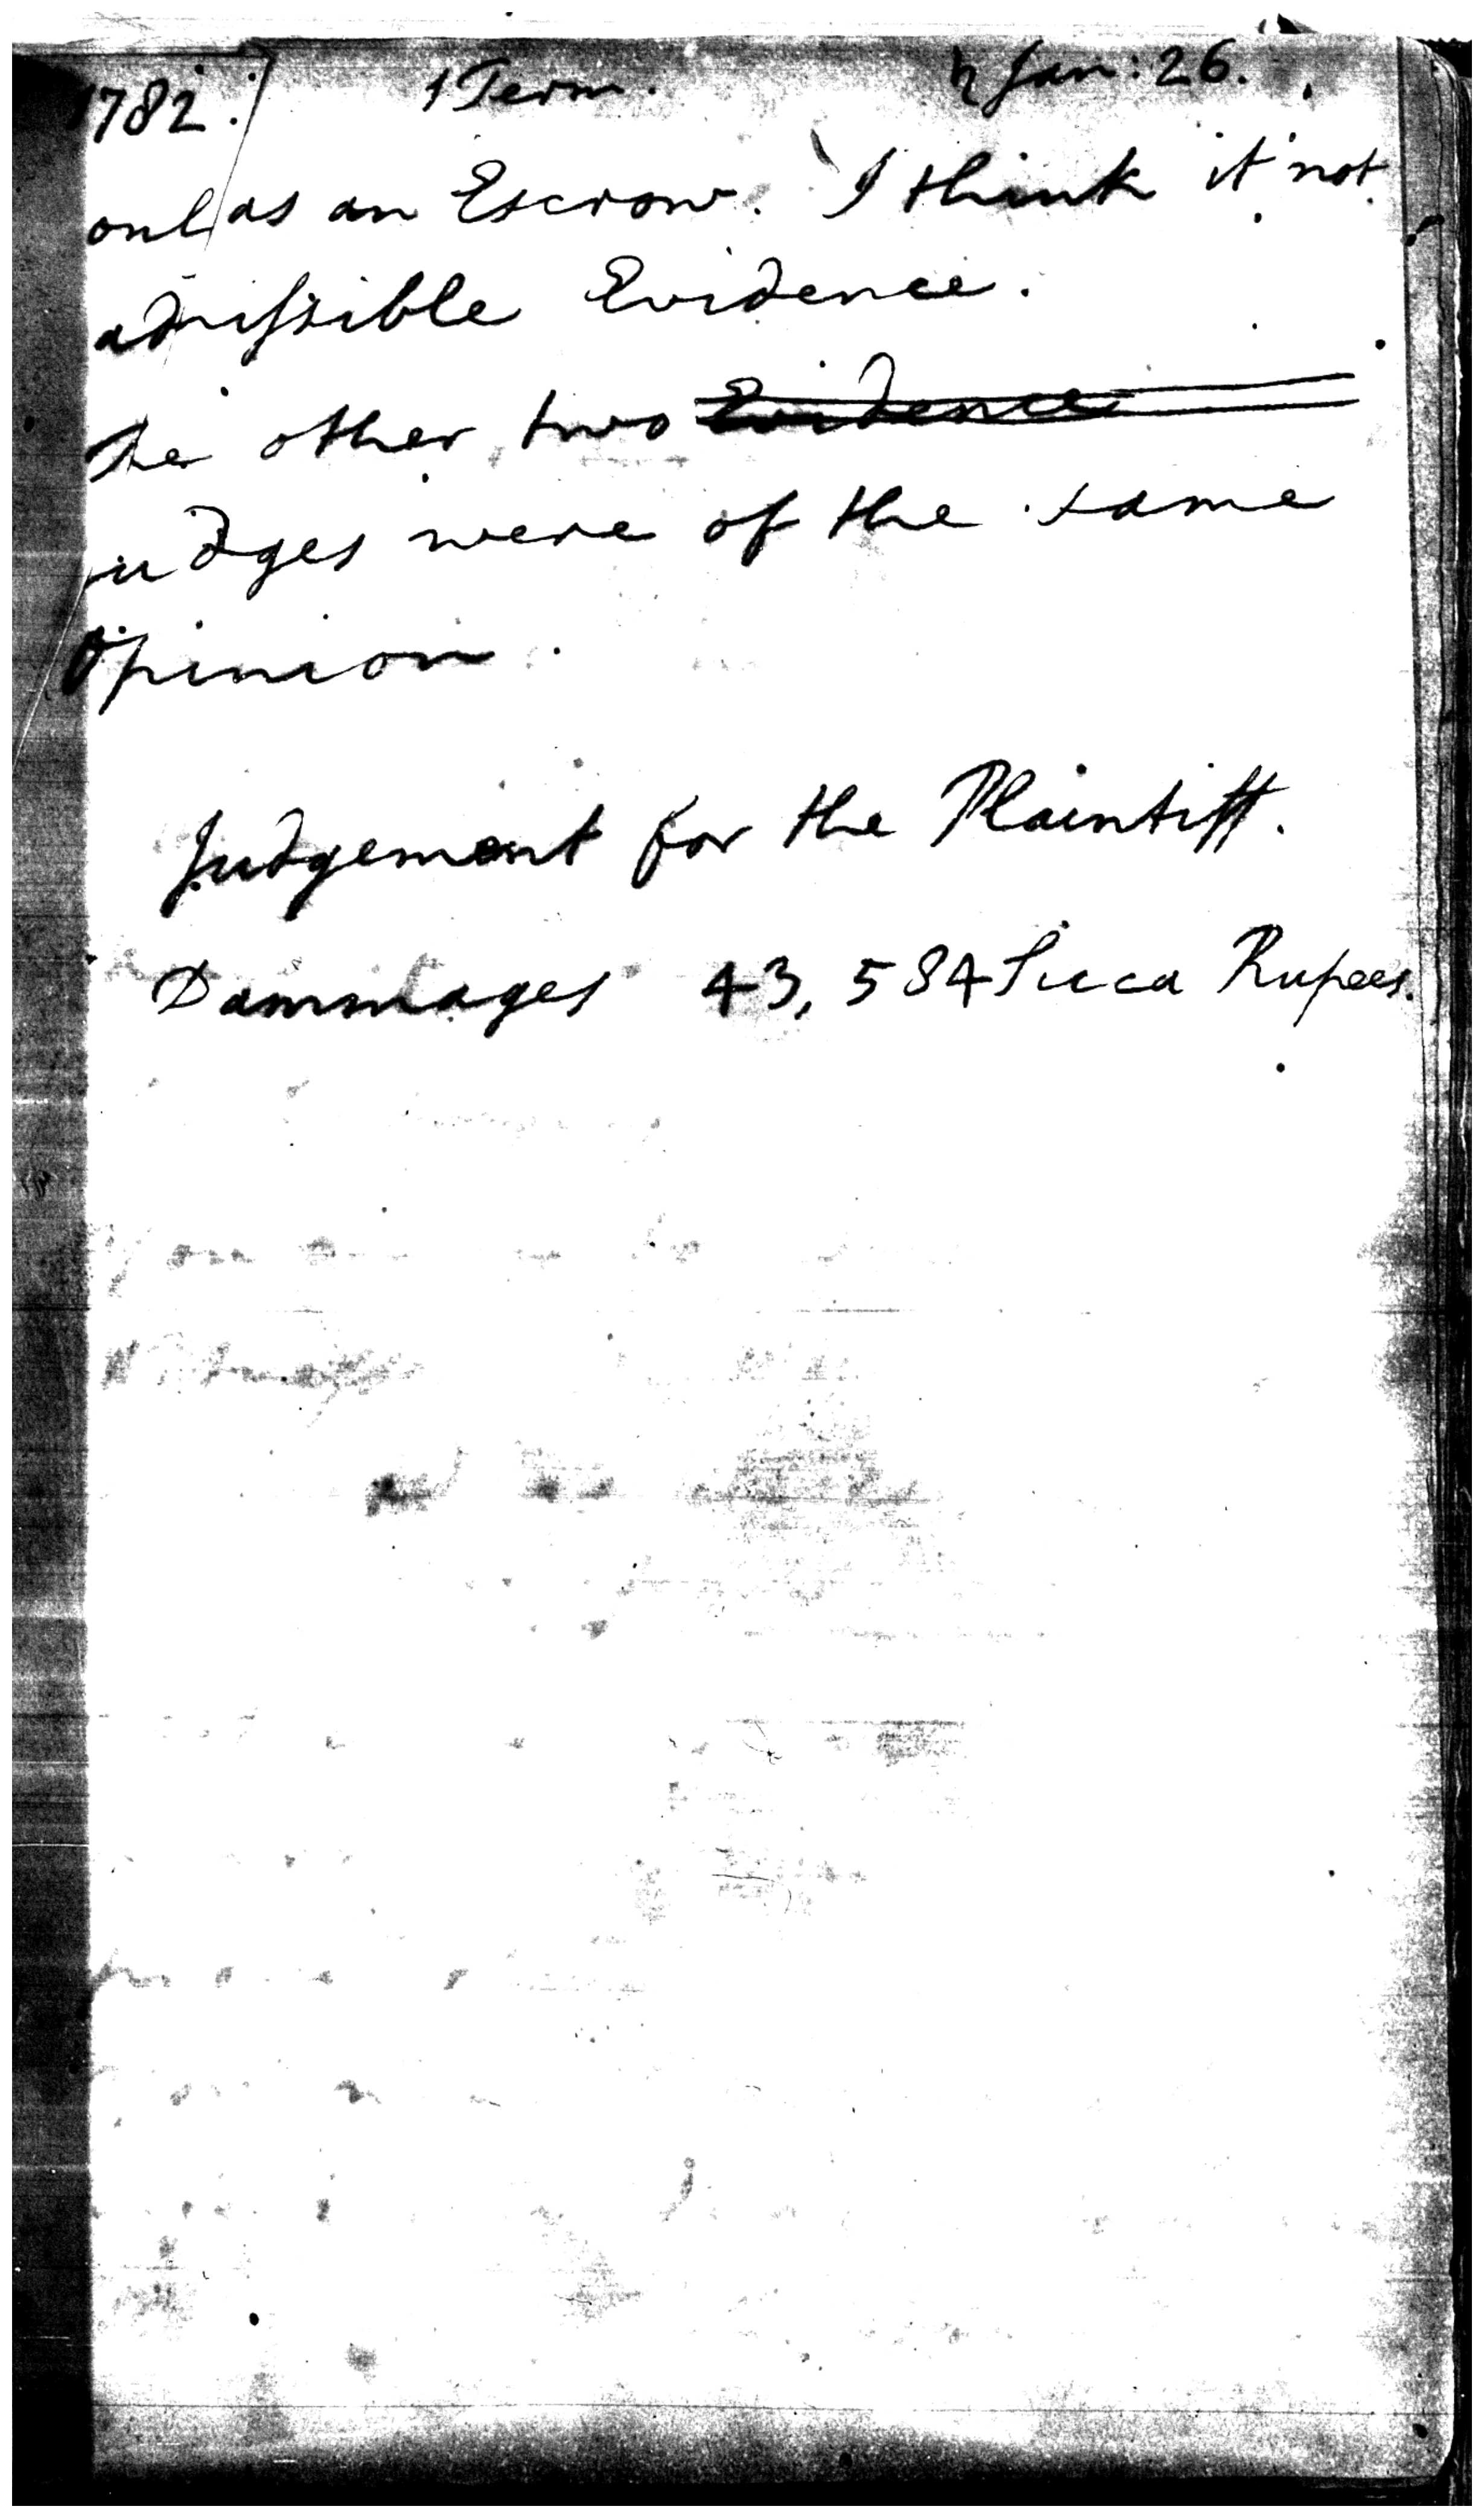 1782. 1 Term. ♄ Jan: 26.
only as an Escrow. I think it not
admissible Evidence.
The other two ~~Evidence~~
judges were of the same
Opinion.
Judgement for the Plaintiff.
Dammages 43,584 Sicca Rupees.